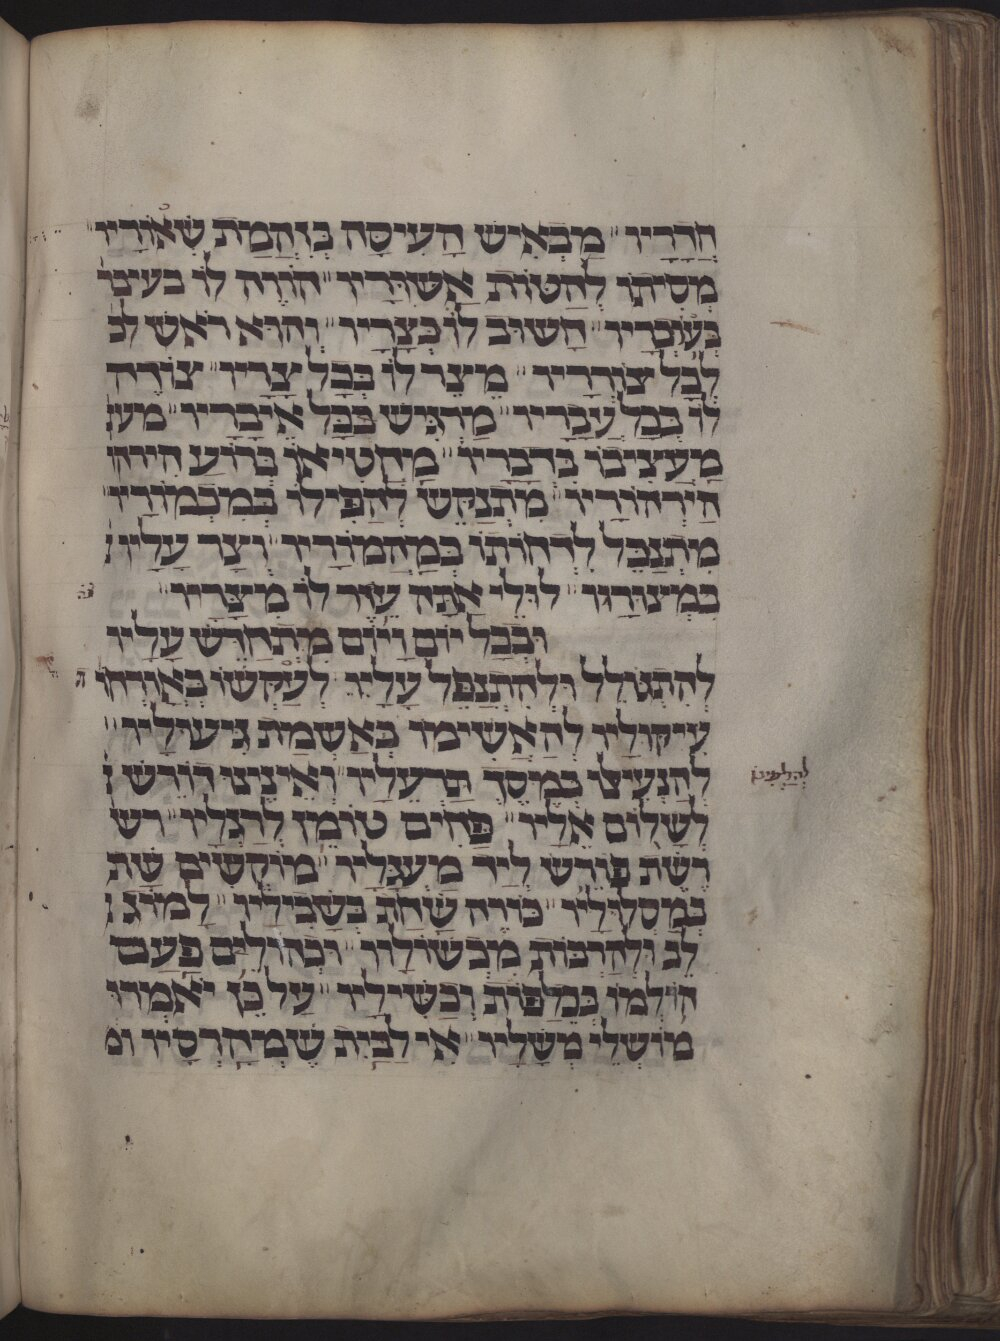 חֲרָרָיו״ מַבְאִישׁ הָעִיסָּה בְּזֻהֲמַת שְׂאוֹרָיו״
מְסִיתוֹ לְהַטּוֹת אֲשׁוּרָיו״ הוֹוֶה לוֹ כעינו
בְּעֶבְרָיו״ חָשׁוּב לוֹ כְּצָרָיו״ וְהוּא רֹאשׁ לכ
לְכָל צוֹרְרָיו״ מֵצֵר לוֹ בְּכָל צָרָיו״ צוֹרֵר
לוֹ בְּכָל עֲבָרָיו״ מַרְגִּישׁ בְּכָל אֵיבָרָיו״ מענ
מַעֲנִיבוֹ בִדְבָרָיו״ מַחֲטִיאוֹ בְּרוֹעַ הירהו
הִירְהוּרָיו״ מִתְנַקֵּשׁ לְהַפִּילוֹ בְּמִכְמוֹרָיו״
מִתְנַכֵּל לִדְחוֹתוֹ בְּמַהֲמוֹרָיו״ וְצָר עָלָיו
בִּמְצוּרָיו״ לוּלֵי אַתָּה עֵזֶר לוֹ מִצָּרָיו״
וּבְכָל יוֹם וָיוֹם מִתְחַדֵּשׁ עָלָיו
לְהִתְגּוֹלֵל וּלְהִתְנַפֵּל עָלָיו לְעַקְּשׁוֹ בְּאָורְחו
עִיקּוּלָיו לְהַאֲשִׁימוֹ בְּאַשְׁמַת גִּישׁוּלָיו״
לְהַנְעִילוֹ בְּמֶסֶךְ תַּרְעֵלָיו״ וְאֵינֶנּוּ דוֹרֵשׁ
לְשָׁלוֹם אֵלָיו״ פַּחִים טוֹמֵן לְרַגְלָיו״ רש
רֶשֶׁת פּוֹרֵשׂ לְיַד מַעְגָּלָיו״ מוֹקְשִׁים שָׁת
בִּמְסִלּוּלָיו״ כּוֹרֶה שַׁחַת בִּשְׁבִילָיו״
לֵב וּלְהַרְבּוֹת מִכְשׁוֹלָיו״ וּכְהוֹלֵם פָּעַם
הוֹלְמוֹ בְּכֵלַפּוֹת וְכַשִּׁילָיו״ עַל כֵּן יֹאמְרוּ
מוֹשְׁלֵי מְשָׁלָיו״ אִי לַבַּיִת שֶׁמְּחָרְסָיו ומ